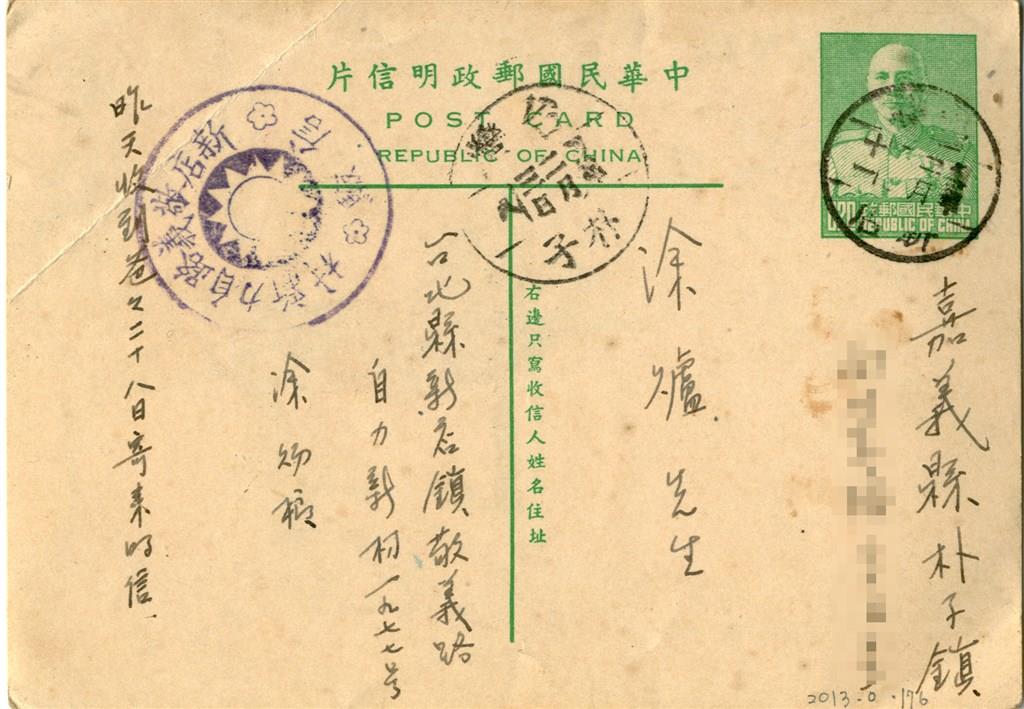 中華民國郵政明信片
POST CARD
REPUBLIC OF CHINA
中華民國郵政
REPUBLIC OF CHINA
嘉義縣朴子鎮
涂爐先生
右邊只寫收信人姓名住址
台北縣新店鎮敬義路
自力新村一九七七号
涂
昨天收到爸々二十八日寄來的信
新店敬義路自力新村
朴子
2013.0.176